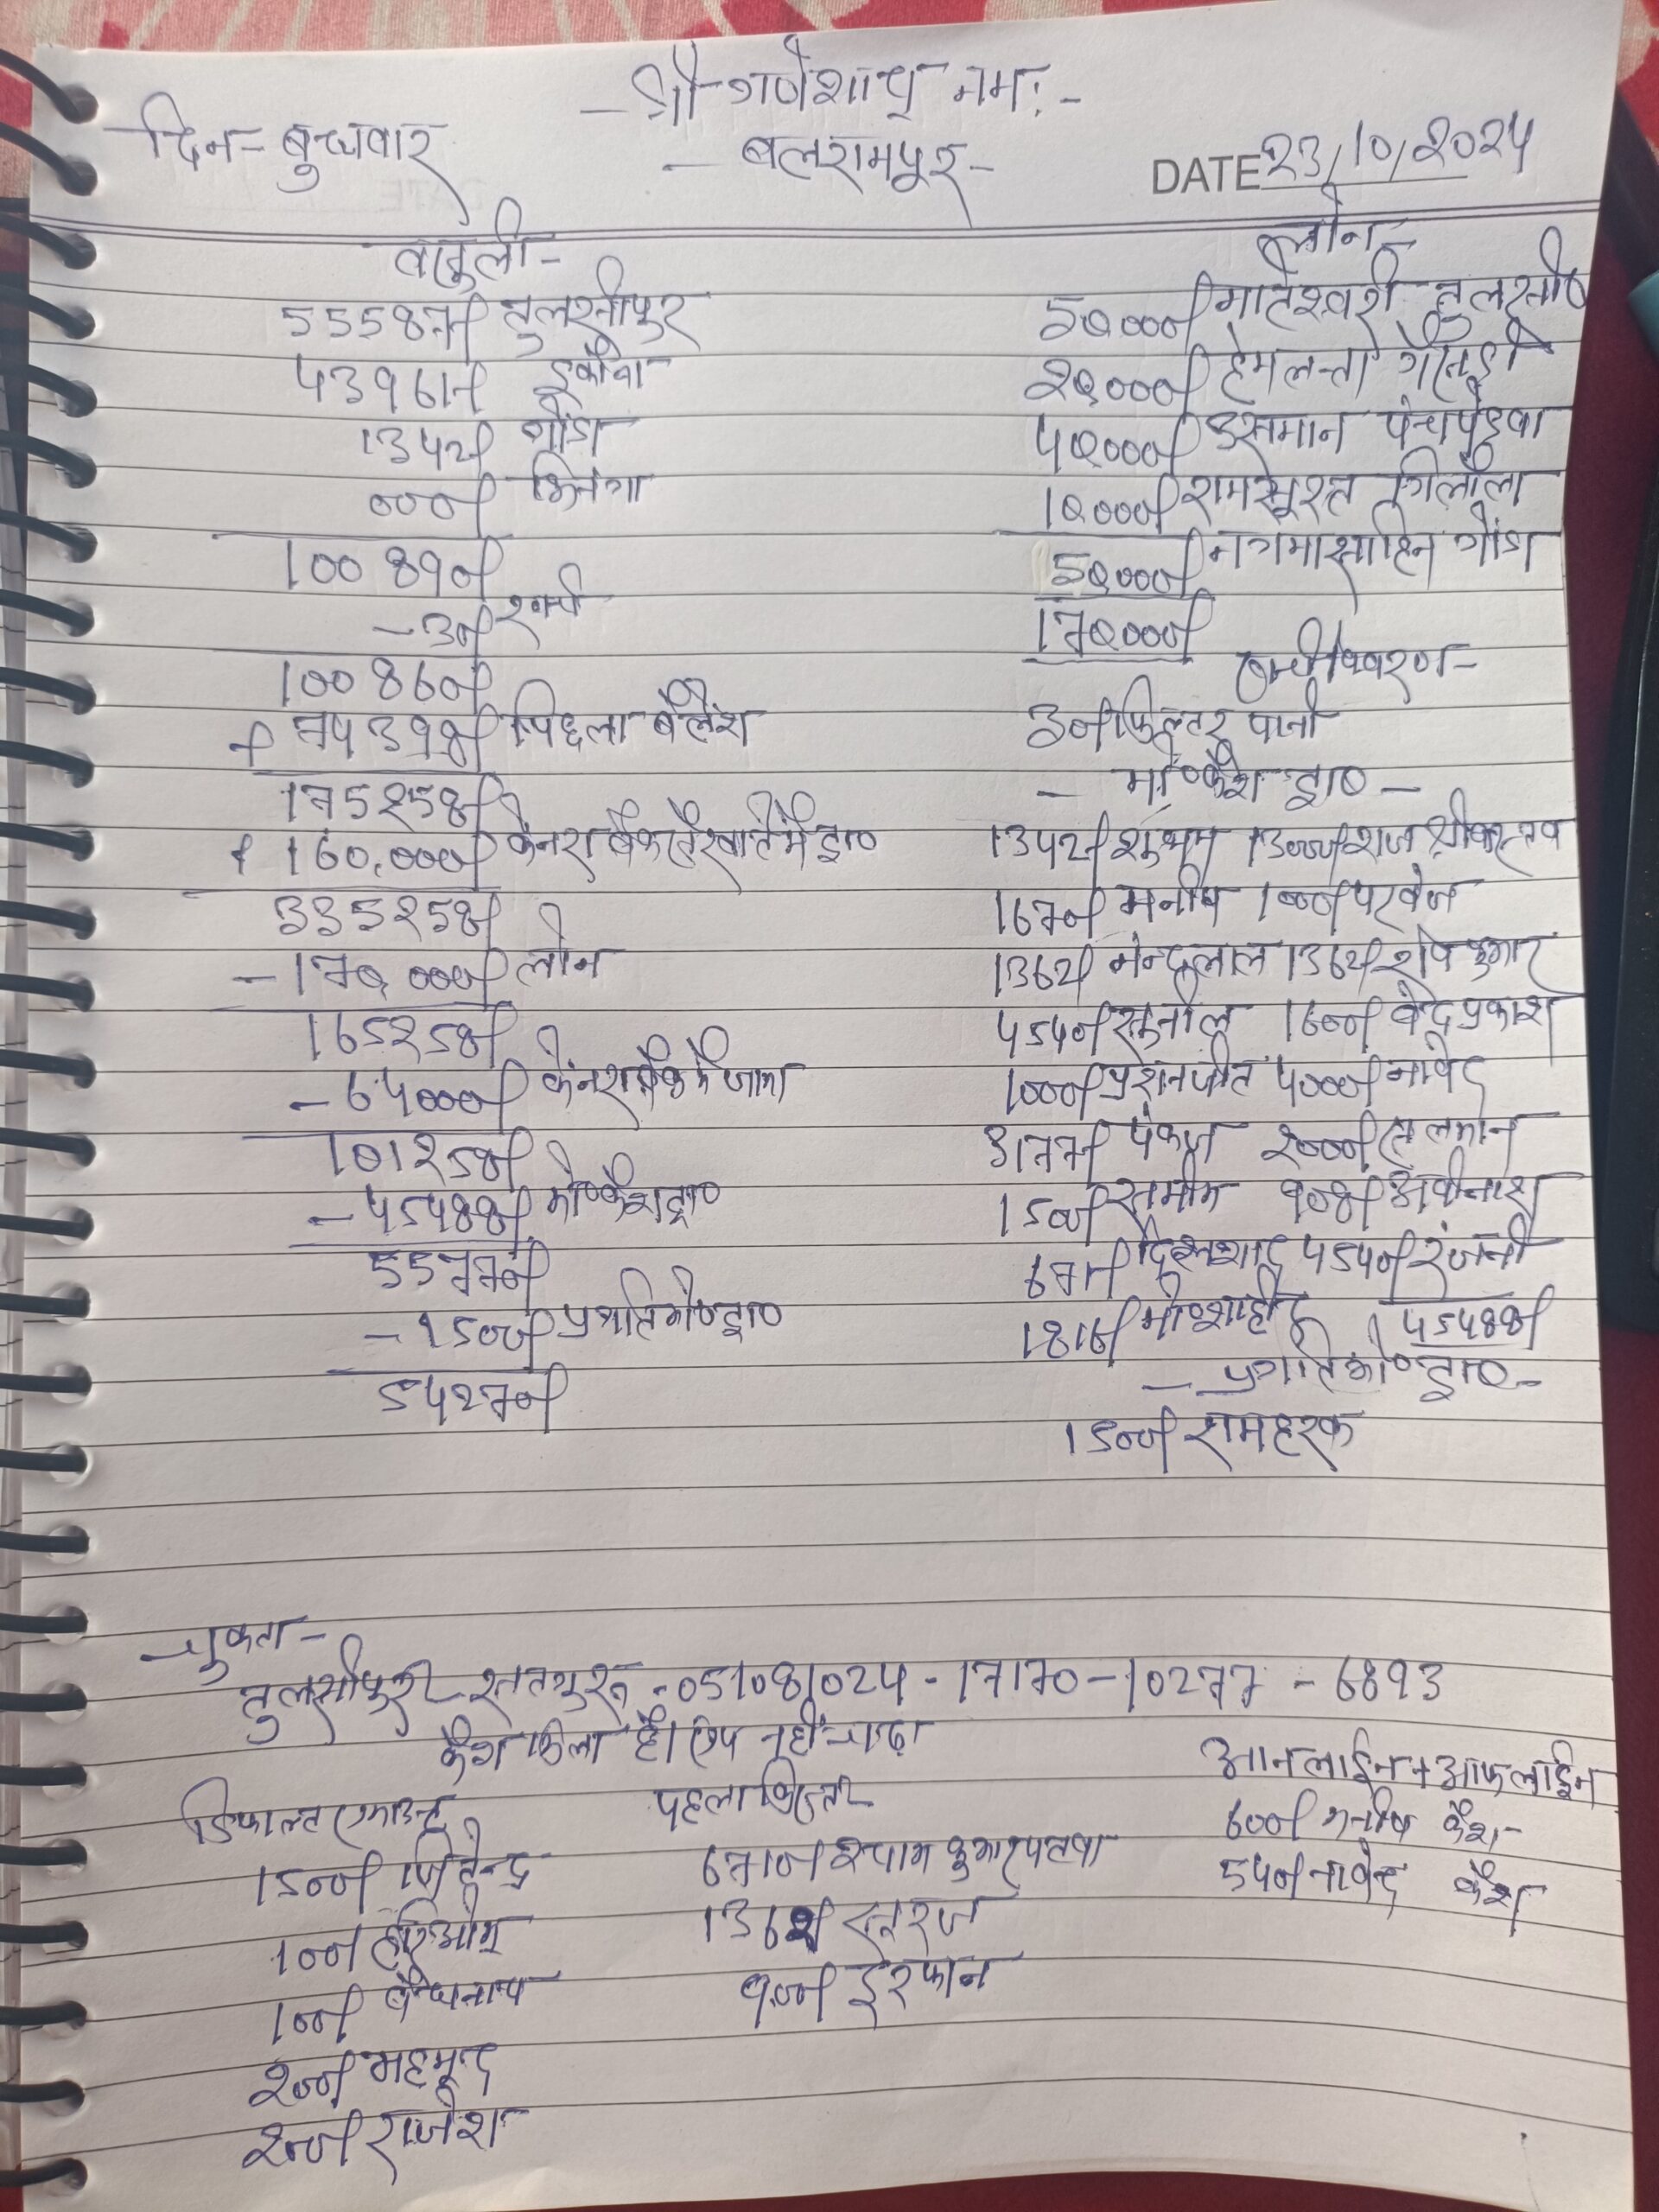 - श्री गणेशाय नमः -
दिन - बुधवार
- बलरामपुर -
DATE 23/10/2024
वसुली -
55587/ तुलसीपुर
43961/ इकौना
1342/ गोंडा
000/ भिनगा
100890/
- 30/ खर्च
100860/
+ 74398/ पिछला बैलेंश
175258/
+ 160,000/ केनरा बैंक से खाते में ट्रा०
335258/
- 170,000/ लोन
165258/
- 64000/ केनरा बैंक में जमा
101258/
- 45488/ मो० कैश ट्रा०
55770/
- 1500/ प्रगति मो० ट्रा०
54270/
लोन -
50,000/ मातेश्वरी तुलसी०
20,000/ हेमलता गैसड़ी
40,000/ उसमान पंचपेड़वा
10,000/ रामसूरत गिलौला
50,000/ नगमा साहिन गोंडा
170,000/
खर्च विवरण -
30/ फिल्टर पानी
- मो० कैश ट्रा० -
1342/ शुभम 13000/ राज श्रीवास्तव
1670/ मनीष 1000/ परवेज
1362/ नन्दलाल 1362/ शेष कुमार
4540/ सुनील 1600/ वेद प्रकाश
1000/ प्रशनजीत 4000/ नावेद
3177/ पंकज 2000/ सलमान
1500/ समीम 908/ अवीनाश
671/ दिलशाद 4540/ रंजनी
1816/ मो० शाहीद 45488/
- प्रगति मो० ट्रा० -
1500/ रामहरक
- चुकता -
तुलसीपुर - सतगुरु - 051081024 - 17170 - 10277 - 6893
कैश मिला है। एप नहीं चढ़ा
डिफाल्ट एमाउन्ट
1500/ जितेन्द्र
100/ हरिओम
100/ बैधनाथ
200/ महमूद
200/ राजेश
पहला किस्त
6710/ श्याम कुमार पटवा
1362/ सूरज
900/ इरफान
आनलाईन + आफलाईन
600/ मनीष कैश
540/ नावेद कैश